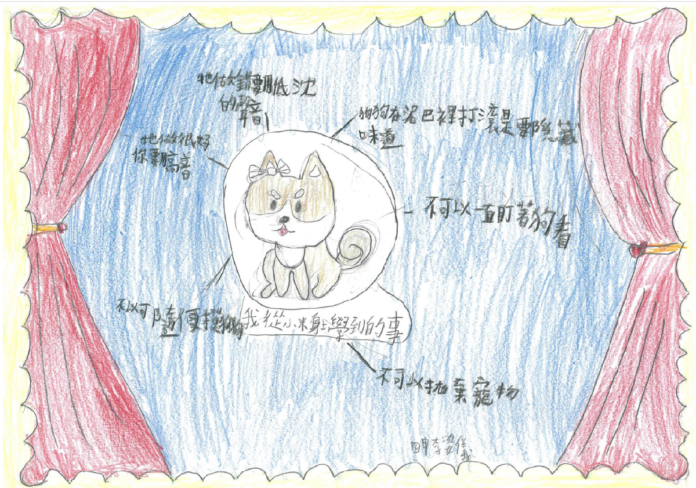 牠做錯要低沈
的聲音
狗狗在泥巴裡打滾是要隱藏
味道
牠做很好
你要高音
不可以一直盯著狗看
不以可隨便摸狗狗
我從小米身上學到的事
不可以拋棄寵物
四甲